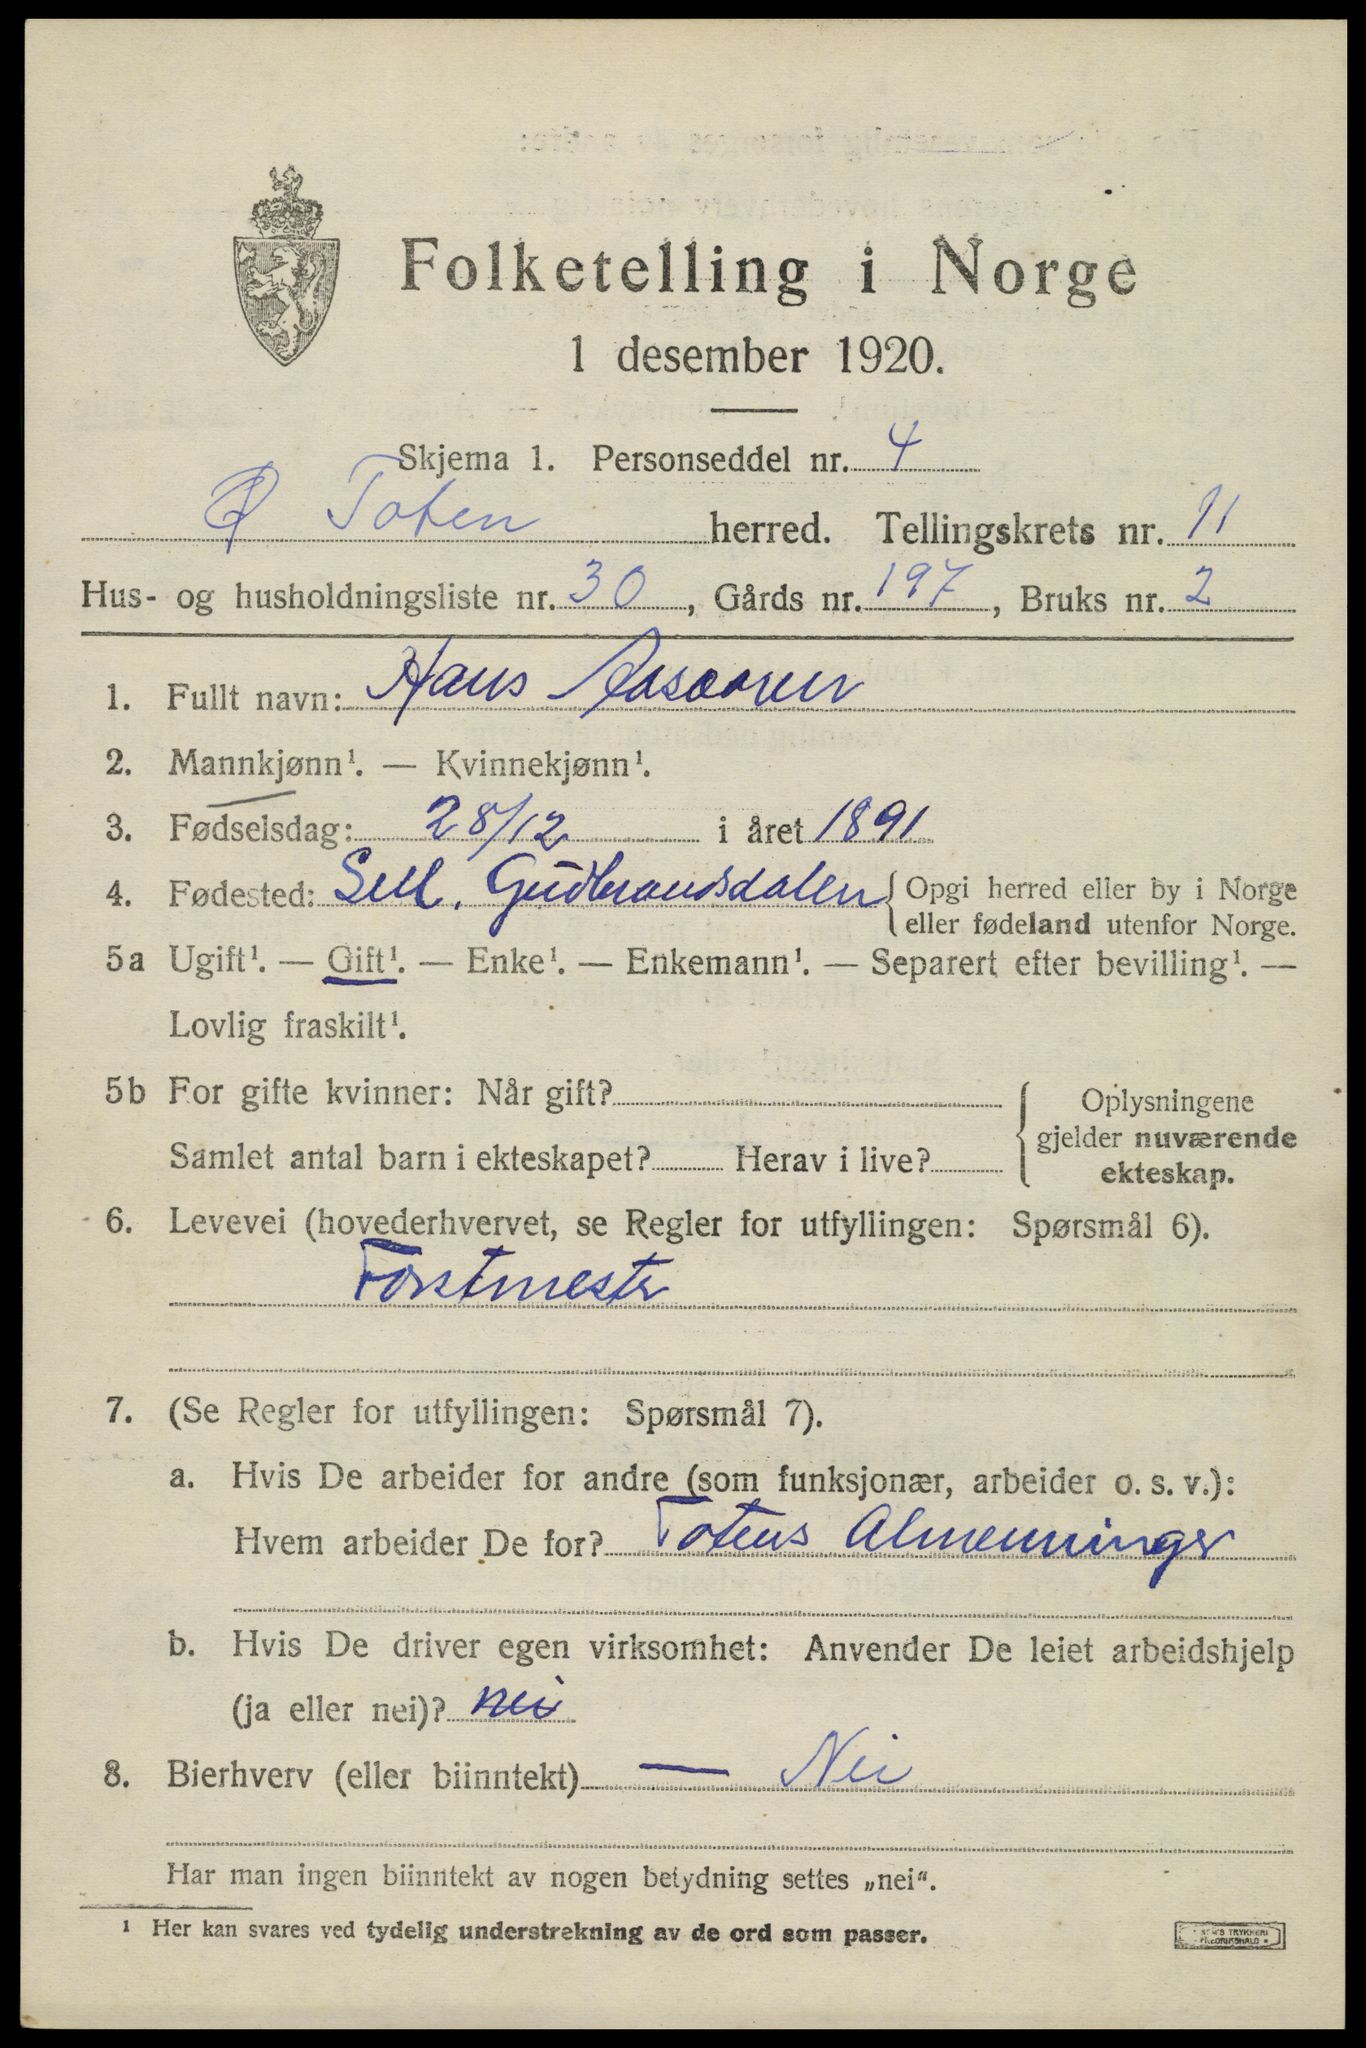 Folketelling i Norge
1 desember 1920.
Skjema 1. Personseddel nr. 4
Ø Toten herred. Tellingskrets nr. 11
Hus- og husholdningsliste nr. 30, Gårds nr. 197, Bruks nr. 2
1. Fullt navn: Hans
2. Mannkjønn¹. — Kvinnekjønn¹.
3. Fødselsdag: 28/12 i året 1891
4. Fødested: Sell, Gudbrandsdalen { Opgi herred eller by i Norge
eller fødeland utenfor Norge.
5a Ugift¹. — Gift¹. — Enke¹. — Enkemann¹. — Separert efter bevilling¹. —
Lovlig fraskilt¹.
5b For gifte kvinner: Når gift?
Samlet antal barn i ekteskapet? Herav i live?
Oplysningene
gjelder nuværende
ekteskap.
6. Levevei (hovederhvervet, se Regler for utfyllingen: Spørsmål 6).
Forstmester
7. (Se Regler for utfyllingen: Spørsmål 7).
a. Hvis De arbeider for andre (som funksjonær, arbeider o. s. v.):
Hvem arbeider De for? Totens Almenninger
b. Hvis De driver egen virksomhet: Anvender De leiet arbeidshjelp
(ja eller nei)? nei
8. Bierhverv (eller biinntekt) — Nei
Har man ingen biinntekt av nogen betydning settes „nei“.
¹ Her kan svares ved tydelig understrekning av de ord som passer.
TRYKKERI
FREDRIKSHALD